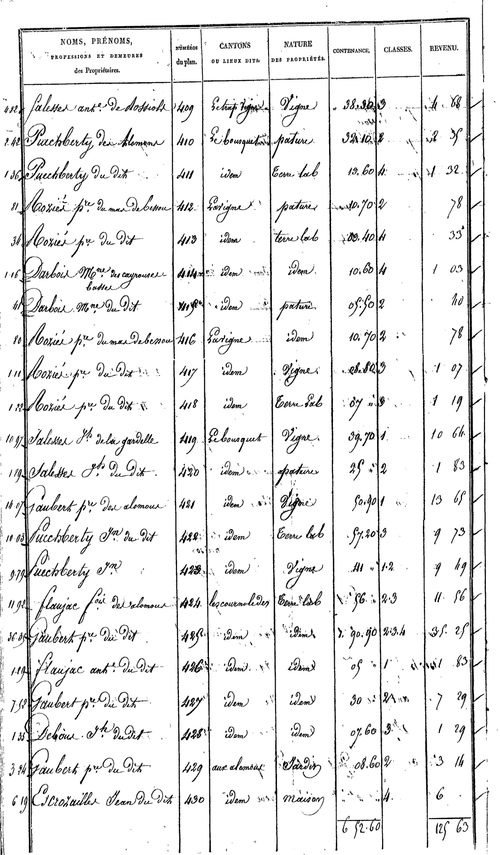 NOMS, PRÉNOMS, PROFESSIONS ET DEMEURES des Propriétaires. NUMÉROS du plan. CANTONS OU LIEUX DITS. NATURE DES PROPRIÉTÉS. CONTENANCE. CLASSES. REVENU.
Salesses ant.e de 409 Vigne 38.30 3 4 68
Puechberty des alemons 410 Le bousquet pature 32.10 2 2 35
1 36 Puechberty du dit 411 idem Terre lab 13.60 4 1 32
Mozié p.re du mas de bessou 412 Lavigne pature 10.70 2 78
Mozié p.re du dit 413 idem terre lab 03.40 4 33
1 16 Darbois M.ne des cayrouses basses 414 idem idem 10.60 4 1 03
41 Darbois M.ne du dit 415 idem pature 05.50 2 40
80 Mozié p.re du mas de bessou 416 Lavigne idem 10.70 2 78
1 11 Mozié p.re du dit 417 idem Vigne 08.80 3 1 07
Mozié p.re du dit 418 idem Terre lab 07 3 1 19
10 97 Salesses J.h de la gardelle 419 Le bousquet Vigne 39.70 1 10 64
Salesses J.h du dit 420 idem pature 25 2 1 83
Gaubert p.re des alemons 421 idem Vigne 50.90 1 13 65
10 03 Puechberty J.n du dit 422 idem Terre lab 57.20 3 9 73
9 79 Puechberty J.n 423 idem Vigne 41 1.2 9 49
11 92 flaujac fois de alemons 424 les cournoledes Terre lab 56 2.3 11 56
Gaubert p.re du dit 425 idem idem 1. 90.90 2.3.4 35 25
flaujac ant.e du dit 426 idem idem 05 1 1 83
7 52 Gaubert p.re du dit 427 idem idem 30 2 7 29
1 33 Dehous J.h du dit 428 idem idem 07.60 3 1 29
3 24 Gaubert p.re du dit 429 aux alemons Jardin 08.60 2 3 14
6 19 Escrozailles Jean du dit 430 idem maison 4 6
6 52.60 125 63